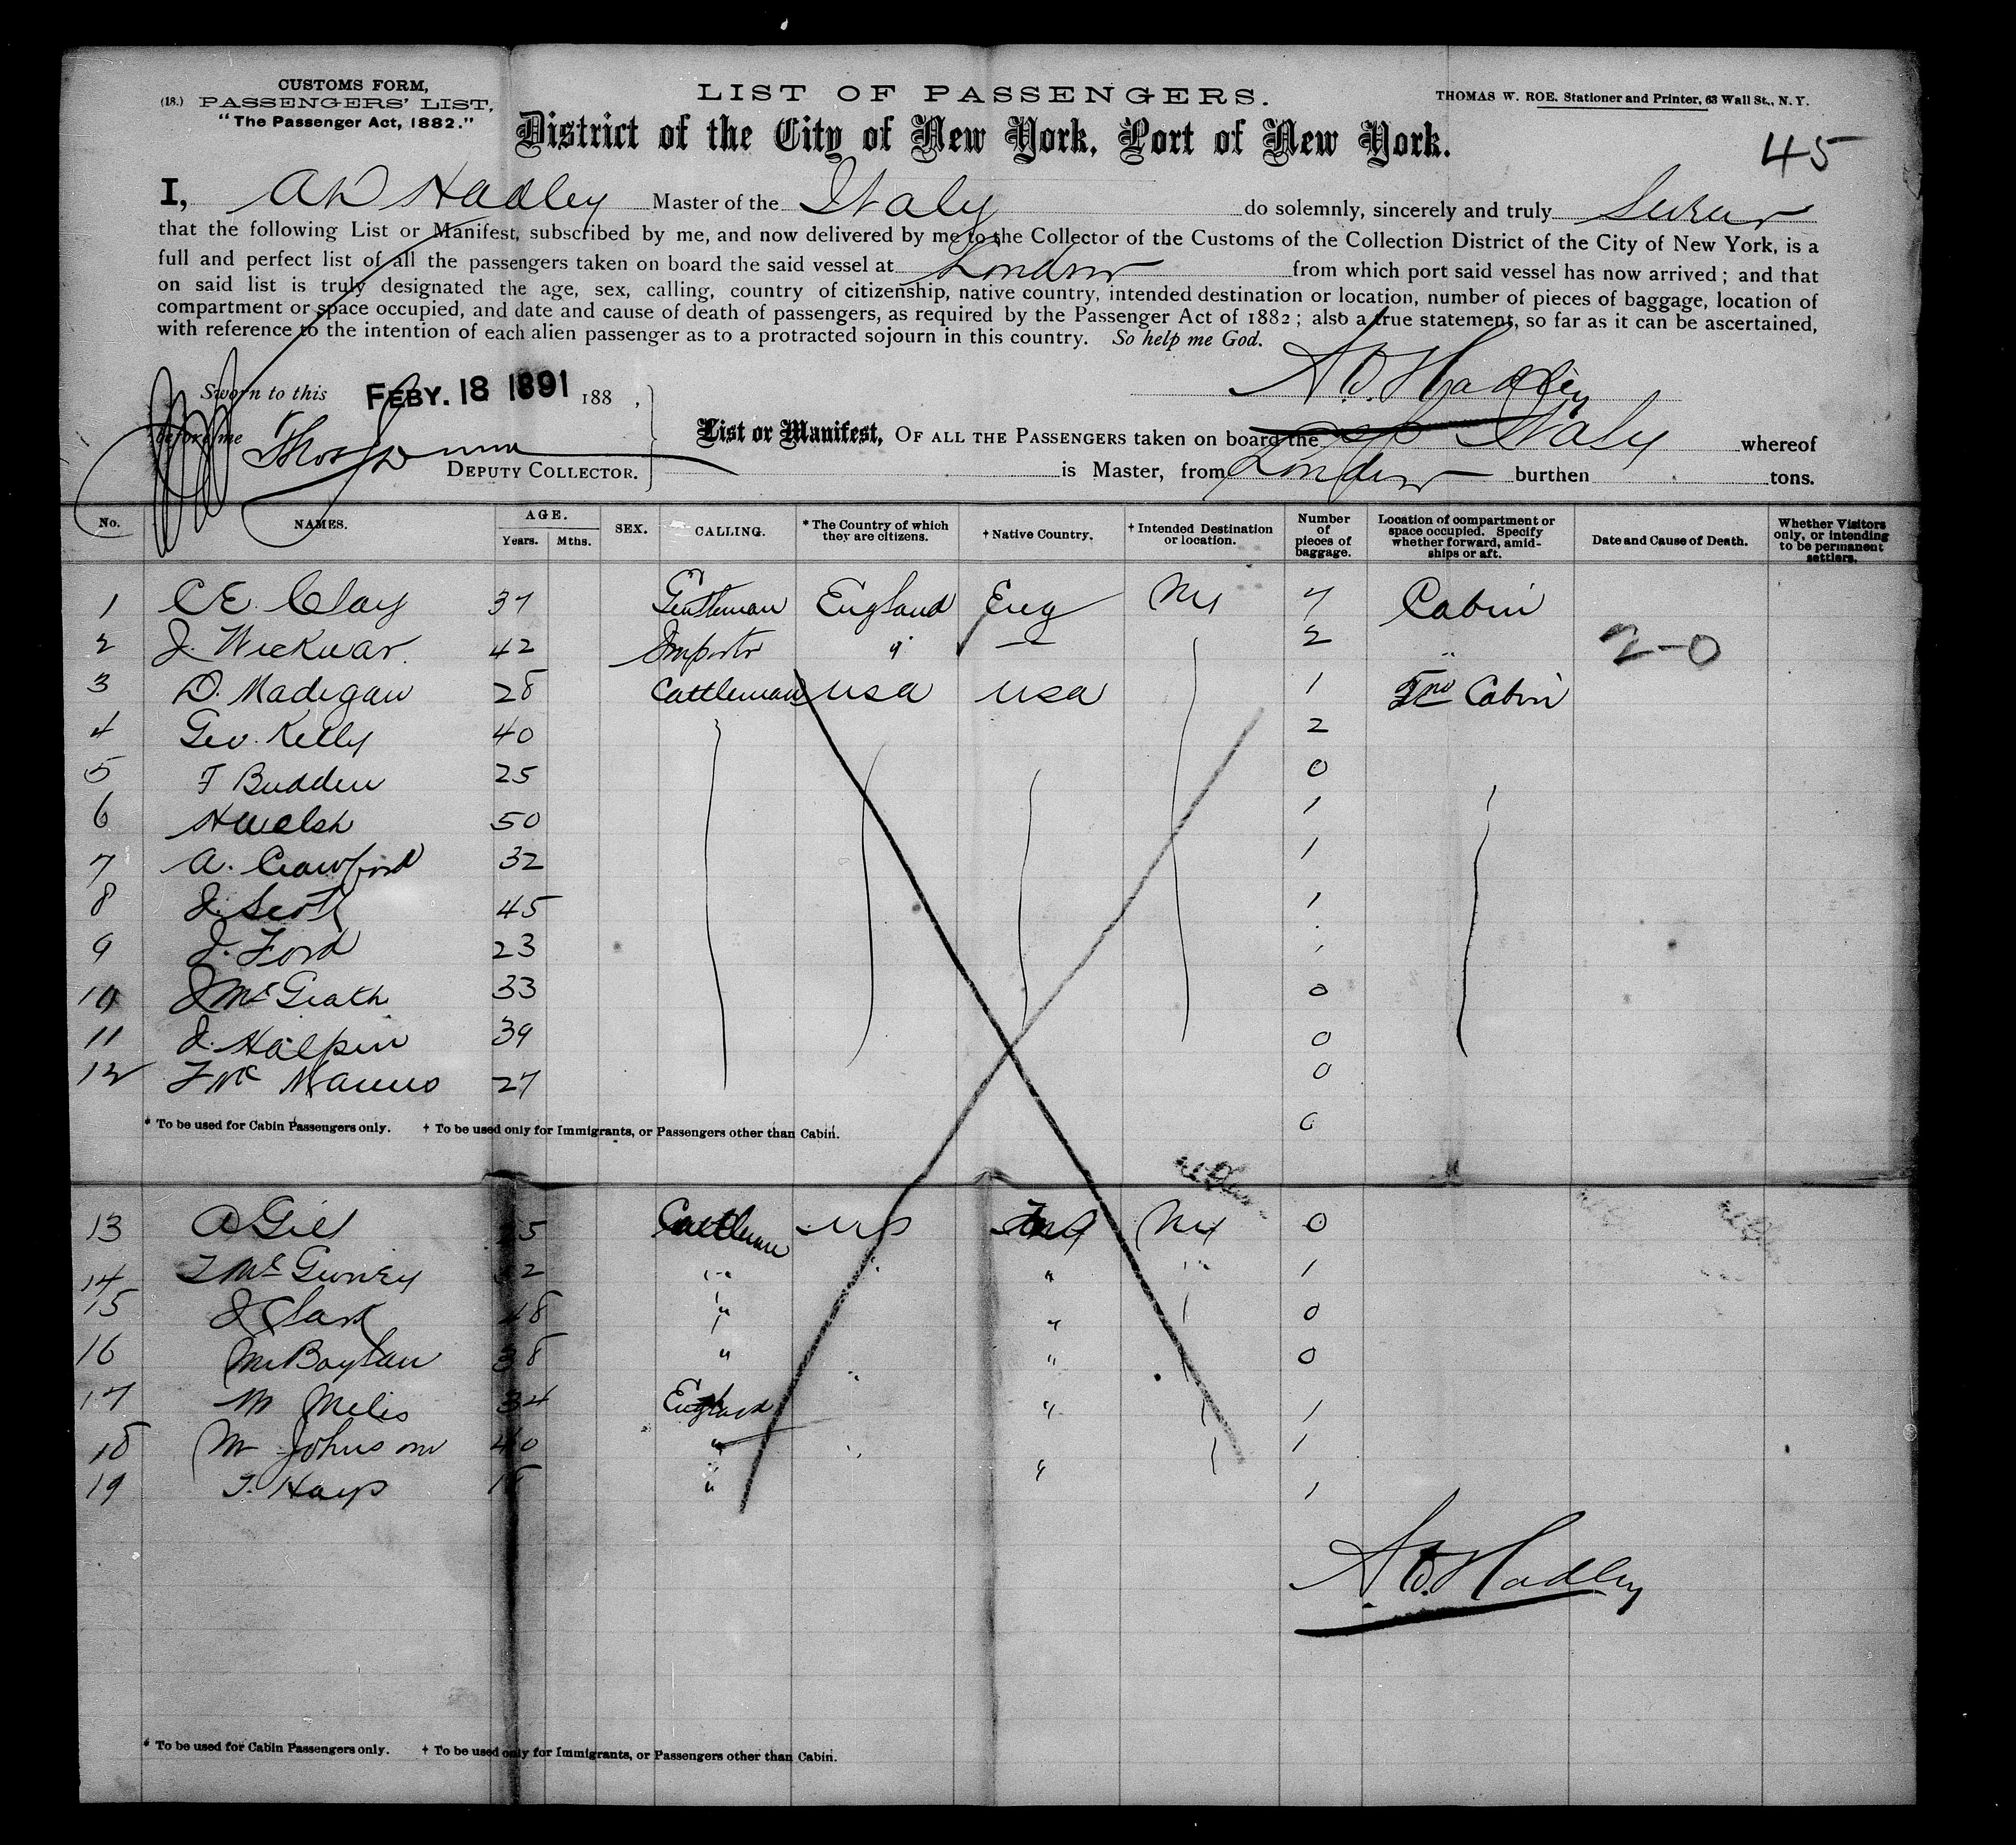 CUSTOMS FORM,
(18.) PASSENGERS' LIST,
"The Passenger Act, 1882."
LIST OF PASSENGERS.
THOMAS W. ROE. Stationer and Printer, 63 Wall St., N. Y.
District of the City of New York, Port of New York.
45
I, A D Hadley Master of the Italy do solemnly, sincerely and truly Swear
that the following List or Manifest, subscribed by me, and now delivered by me to the Collector of the Customs of the Collection District of the City of New York, is a
full and perfect list of all the passengers taken on board the said vessel at London from which port said vessel has now arrived; and that
on said list is truly designated the age, sex, calling, country of citizenship, native country, intended destination or location, number of pieces of baggage, location of
compartment or space occupied, and date and cause of death of passengers, as required by the Passenger Act of 1882; also a true statement, so far as it can be ascertained,
with reference to the intention of each alien passenger as to a protracted sojourn in this country. So help me God.
A. D. Hadley
Sworn to this FEBY. 18 1891 188 ,
before me
DEPUTY COLLECTOR.
List or Manifest, OF ALL THE PASSENGERS taken on board the Italy whereof
is Master, from London burthen tons.
No. NAMES. AGE. Years. Mths. SEX. CALLING. * The Country of which they are citizens. † Native Country. † Intended Destination or location. Number of pieces of baggage. Location of compartment or space occupied. Specify whether forward, amidships or aft. Date and Cause of Death. Whether Visitors only, or intending to be permanent settlers.
1 C E. Clay 37 Gentleman England Eng NY 7 Cabin
2 J. Wickwar. 42 Importer " 2 " 2-0
3 D. Madigan 28 Cattleman USA USA 1 2nd Cabin
4 Geo. Kelly 40 2
5 F Budden 25 0
6 H Welsh 50 1
7 A. Crawford 32 1
8 J. Scott 45 1
9 J. Ford 23
10 J McGrath 33 0
11 J. Halpin 39 0
12 F Mc Manus 27 0
0
* To be used for Cabin Passengers only. † To be used only for Immigrants, or Passengers other than Cabin.
13 A Gill 25 Cattleman US NY 0
14 " " " 1
15 J Clark " " 0
16 M Boylan 38 " " 0
17 M 34 England " 1
18 M Johnson 40 " 1
19 T. Hays 18 " " 1
A. D. Hadley
* To be used for Cabin Passengers only. † To be used only for Immigrants, or Passengers other than Cabin.